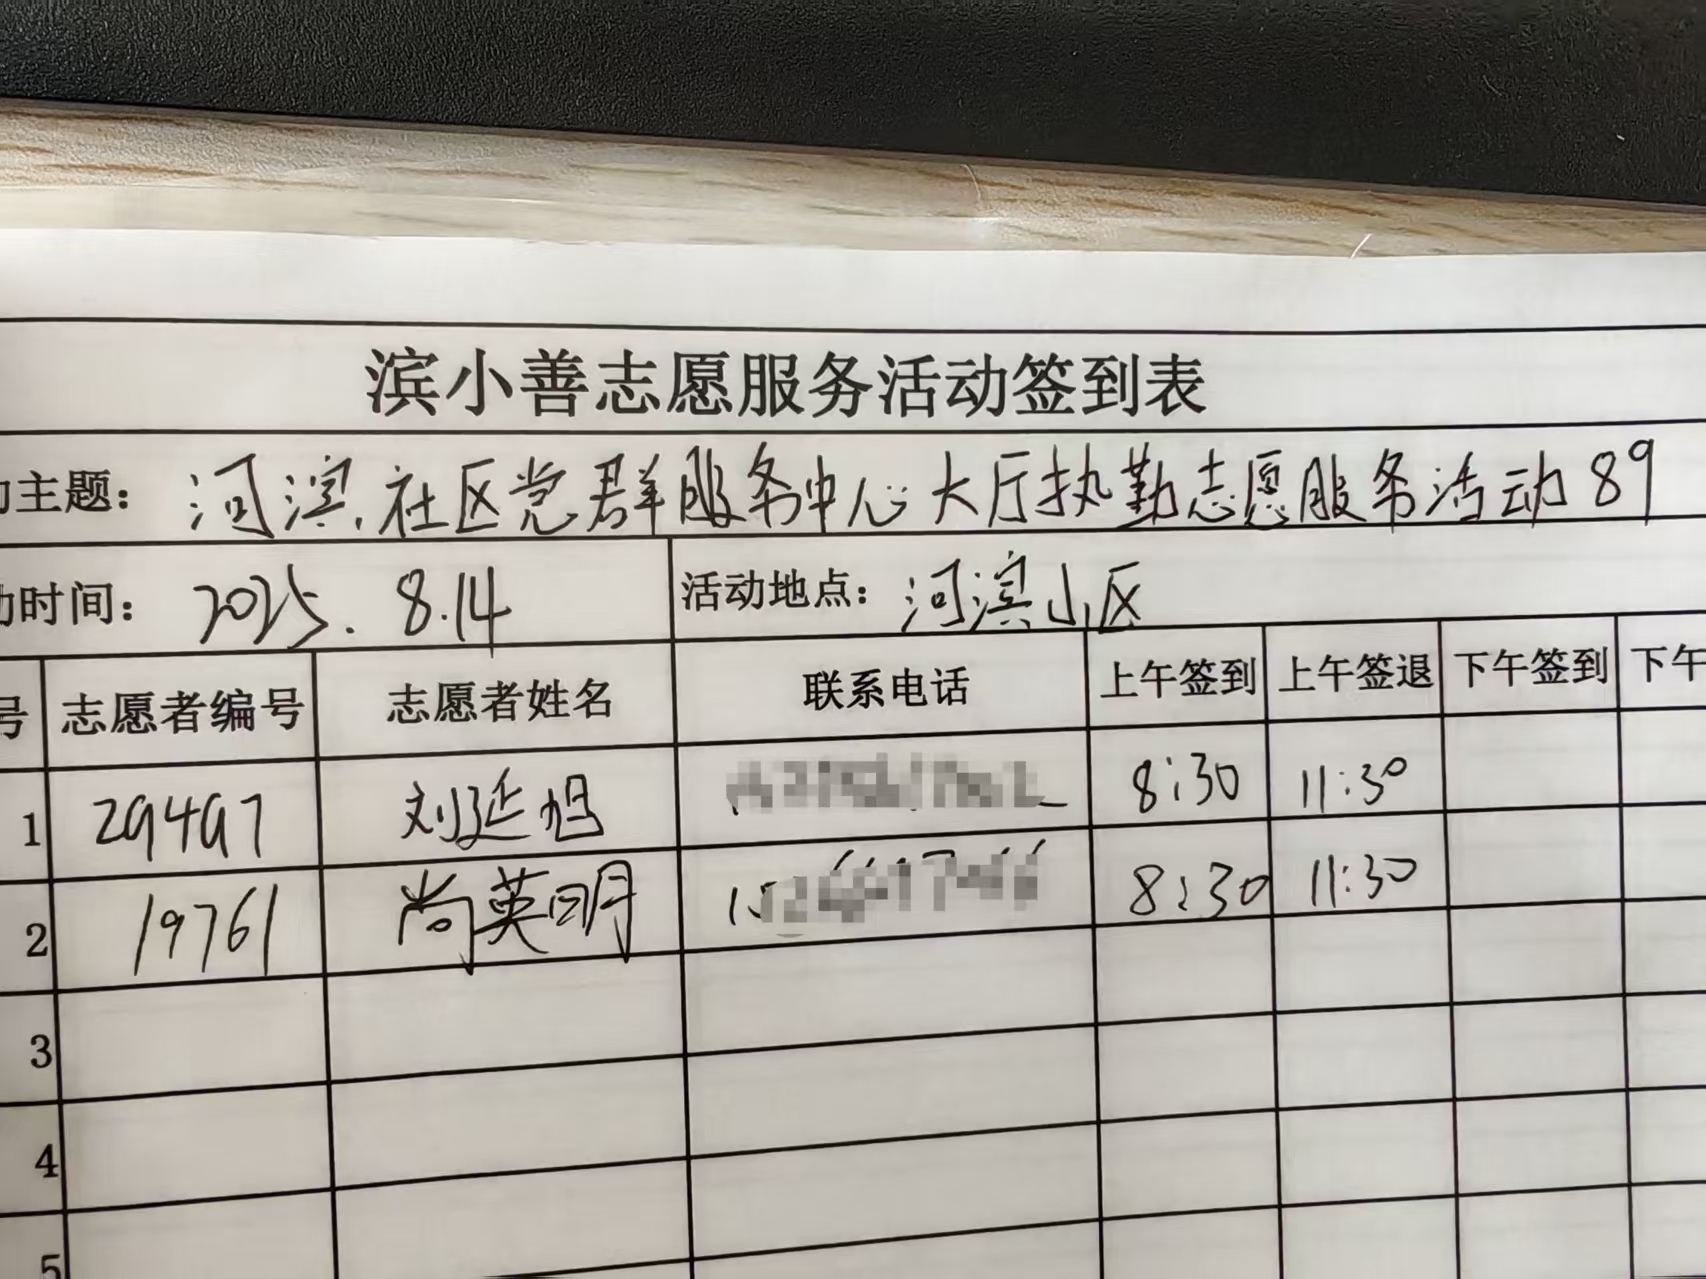 滨小善志愿服务活动签到表
主题：河滨社区党群服务中心大厅执勤志愿服务活动89
时间：2025.8.14 活动地点：河滨小区
号 志愿者编号 志愿者姓名 联系电话 上午签到 上午签退 下午签到 下午
1 29497 刘延旭 8:30 11:30
2 19761 尚英明 8:30 11:30
3
4
5